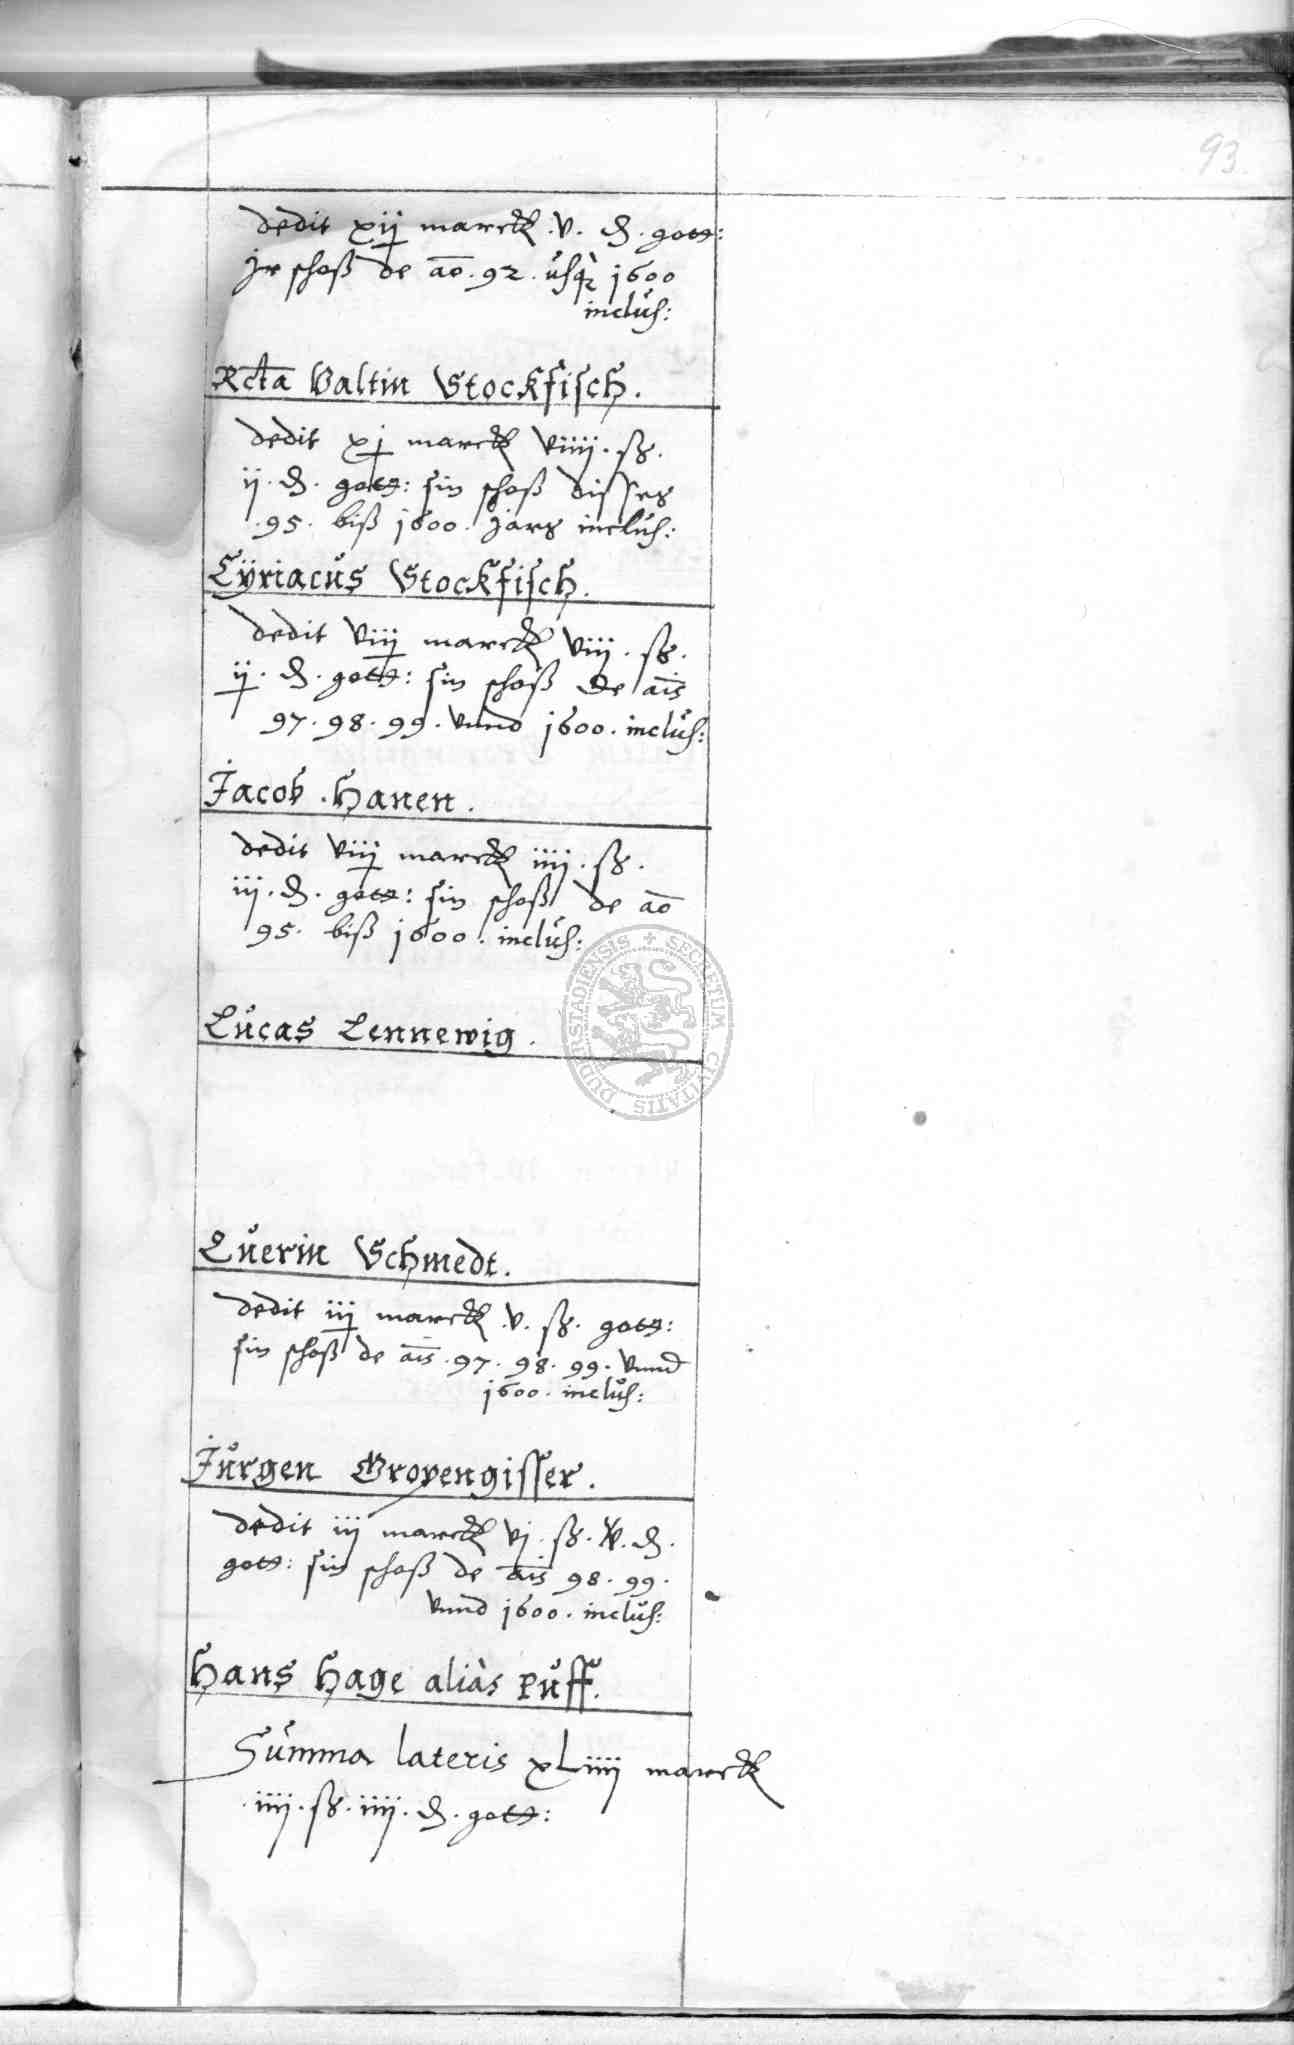 93.
dedit xij marck .v. ₰. gott:
Jr schoß de ao. 92. usq 1600
inclus:
Rcta Valtin Stockfisch.
dedit xj marck viiij. ß.
ij. ₰. gott: sin schoß disses
.95. biß 1600. Jars inclus:
Cÿriacus Stockfisch.
dedit viij marck viij. ß.
ij. ₰. gott: sin schoß de ais
97. 98. 99. vnnd 1600. inclus:
Jacob. Hanen.
dedit viij marck iiij. ß.
iij. ₰. gott: sin schoß de ao
95. biß 1600. inclus:
Lucas Lennewig.
SECRETUM CIVITATIS DUDERSTADIENSIS
Querin Schmedt.
dedit iij marck .v. ß. gott:
sin schoß de ais .97. 98. 99. vnnd
1600. inclus:
Jurgen Gropengisser.
dedit iij marck vj. ß. ₰.
gott: sin schoß de ais 98. 99.
vnnd 1600. inclus:
Hans Hage aliàs Puff.
Summa lateris xLiiij marck
.iiij. ß. iiij. ₰. gott: